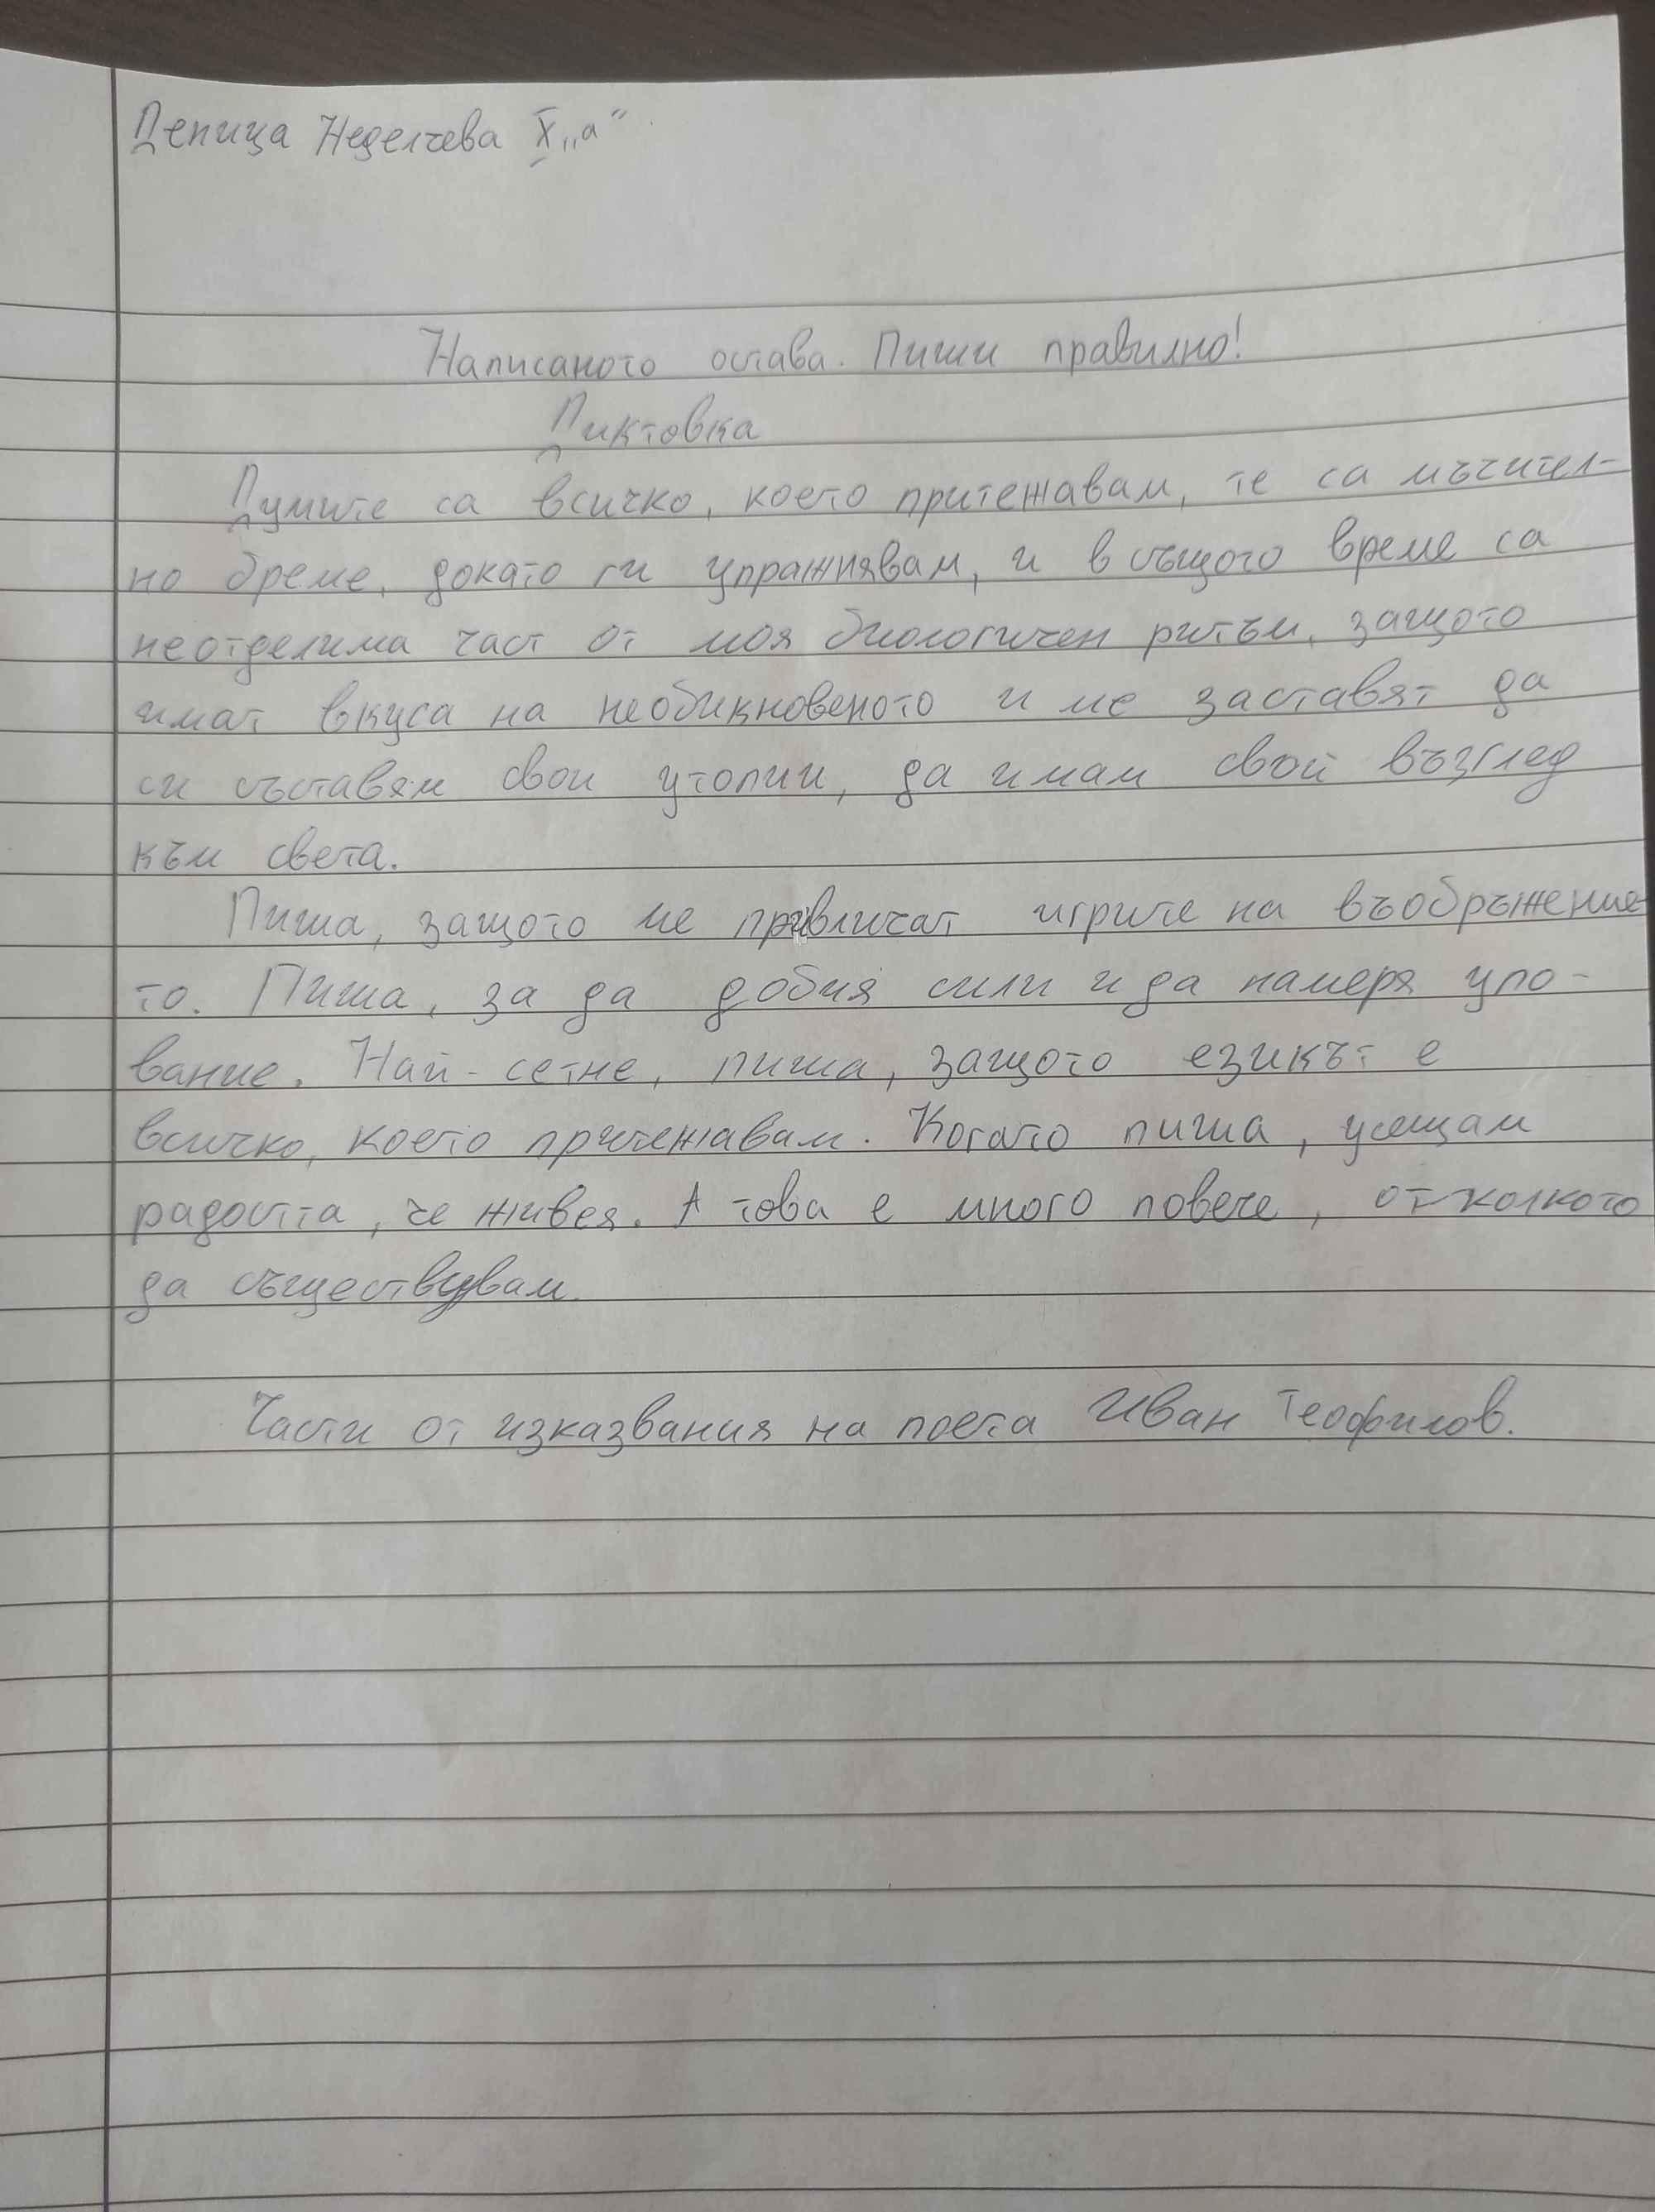 Деница Неделчева X „а“
Написаното остава. Пиши правилно!
Диктовка
Думите са всичко, което притежавам, те са мъчител-
но бреме, докато ги упражнявам, и в същото време са
неотделима част от моя биологичен ритъм, защото
имат вкуса на необикновеното и ме заставят да
си съставям свои утопии, да имам свой възглед
към света.
Пиша, защото ме привличат игрите на въобръжение-
то. Пиша, за да добия сили и да намеря упо-
вание. Най-сетне, пиша, защото езикът е
всичко, което притежавам. Когато пиша, усещам
радостта, че живея. А това е много повече, отколкото
да съществувам.
Части от изказвания на поета Иван Теофилов.